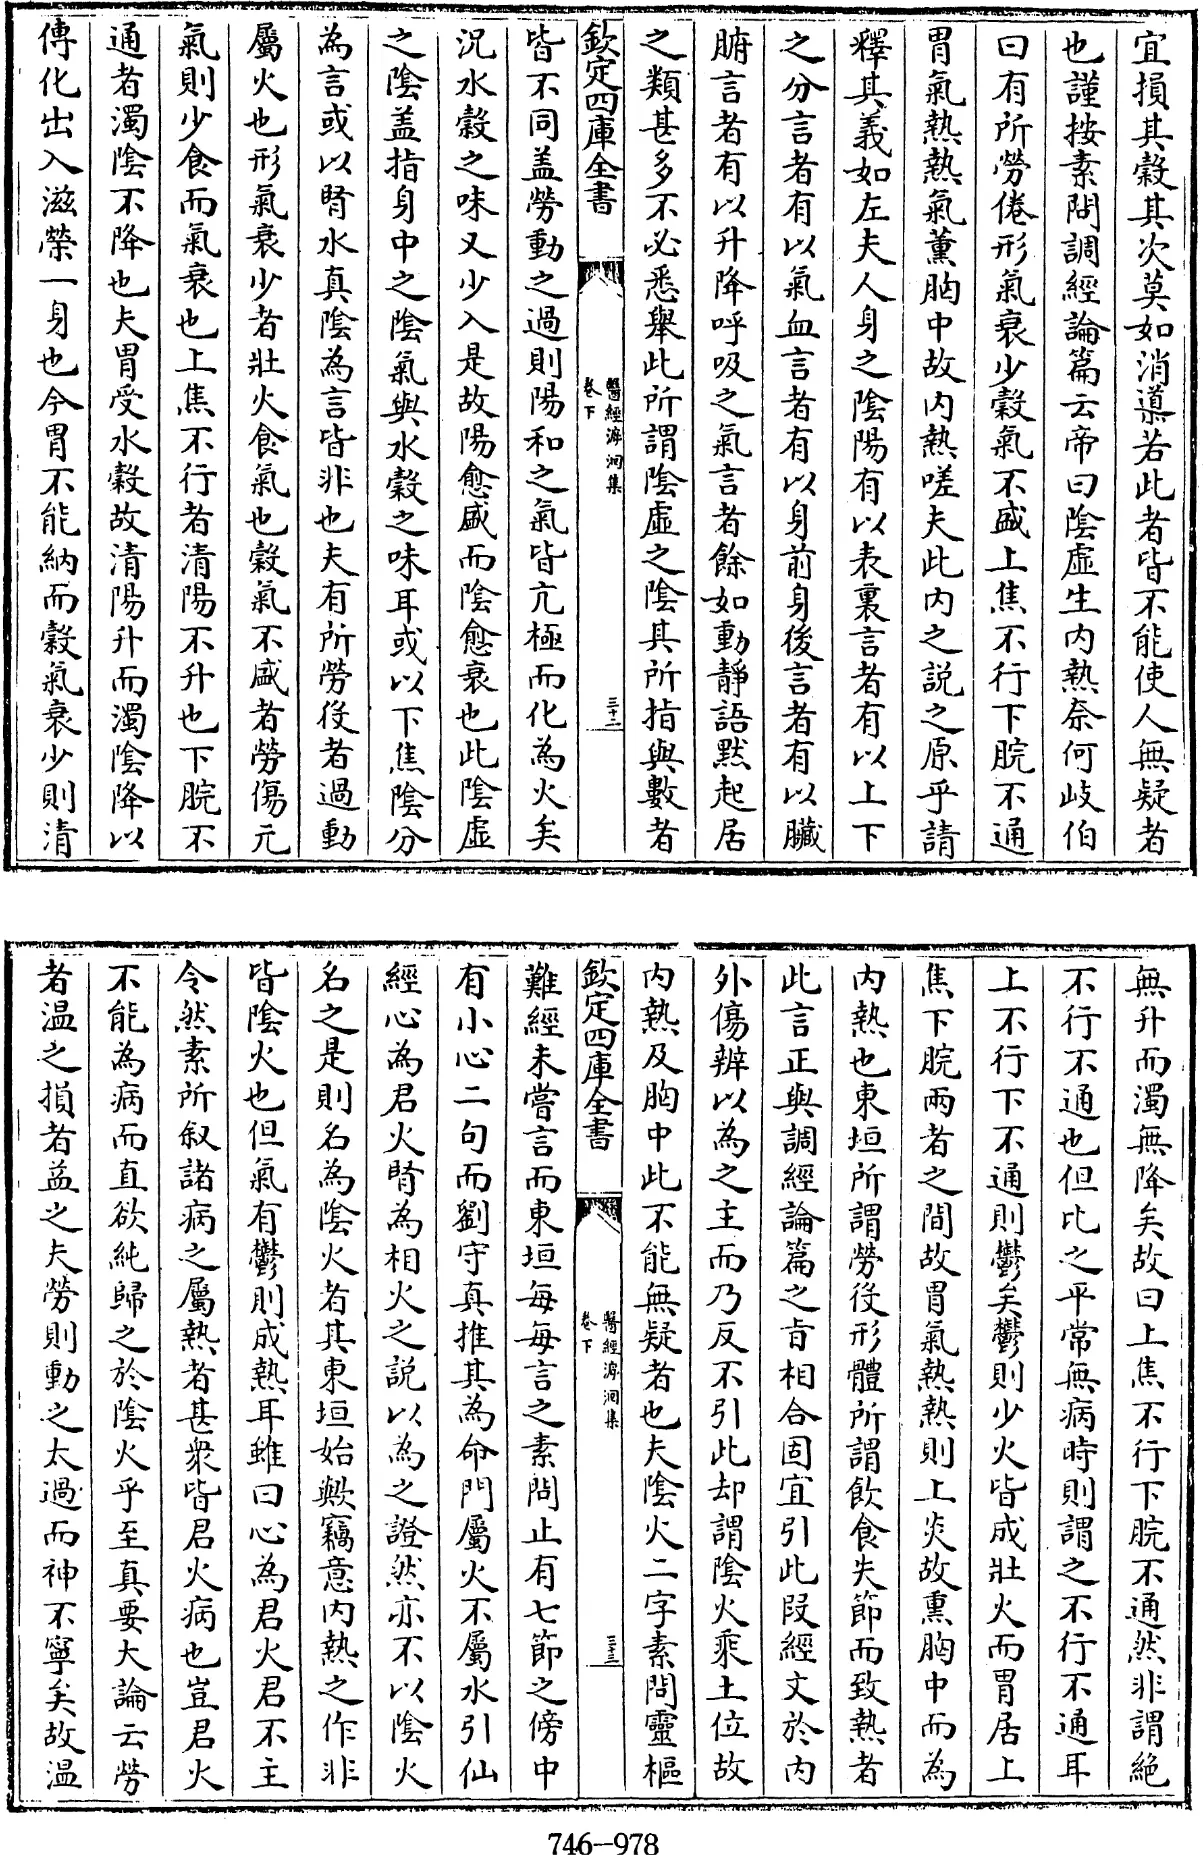 宜損其穀其次莫如消導若此者皆不能使人無疑者
也謹按素問調經論篇云帝曰陰虛生内熱奈何岐伯
曰有所勞倦形氣衰少穀氣不盛上焦不行下脘不通
胃氣熱熱氣薰胸中故内熱嗟夫此内之説之原乎請
釋其義如左夫人身之陰陽有以表裏言者有以上下
之分言者有以氣血言者有以身前身後言者有以臟
腑言者有以升降呼吸之氣言者餘如動靜語默起居
之類甚多不必悉舉此所謂陰虛之陰其所指與數者
欽定四庫全書
醫經溯洄集
卷下
三十二
皆不同盖勞動之過則陽和之氣皆亢極而化為火矣
況水穀之味又少入是故陽愈盛而陰愈衰也此陰虛
之陰盖指身中之陰氣與水穀之味耳或以下焦陰分
為言或以腎水真陰為言皆非也夫有所勞役者過動
屬火也形氣衰少者壯火食氣也穀氣不盛者勞傷元
氣則少食而氣衰也上焦不行者清陽不升也下脘不
通者濁陰不降也夫胃受水穀故清陽升而濁陰降以
傳化出入滋榮一身也今胃不能納而穀氣衰少則清
無升而濁無降矣故曰上焦不行下脘不通然非謂絶
不行不通也但比之平常無病時則謂之不行不通耳
上不行下不通則鬱矣鬱則少火皆成壯火而胃居上
焦下脘兩者之間故胃氣熱熱則上炎故熏胸中而為
内熱也東垣所謂勞役形體所謂飲食失節而致熱者
此言正與調經論篇之旨相合固宜引此段經文於内
外傷辨以為之主而乃反不引此却謂陰火乘土位故
内熱及胸中此不能無疑者也夫陰火二字素問靈樞
欽定四庫全書
醫經溯洄集
卷下
三十三
難經未嘗言而東垣每每言之素問止有七節之傍中
有小心二句而劉守真推其為命門屬火不屬水引仙
經心為君火腎為相火之説以為之證然亦不以陰火
名之是則名為陰火者其東垣始歟竊意内熱之作非
皆陰火也但氣有鬱則成熱耳雖曰心為君火君不主
令然素所叙諸病之屬熱者甚衆皆君火病也豈君火
不能為病而直欲純歸之於陰火乎至真要大論云勞
者温之損者益之夫勞則動之太過而神不寧矣故温
746-978